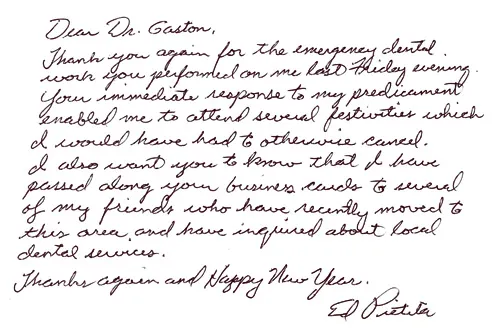 Dear Dr. Gaston,
Thank you again for the emergency dental
work you performed on me last Friday evening.
Your immediate response to my predicament
enabled me to attend several festivities which
I would have had to otherwise cancel.
I also want you to know that I have
passed along your business cards to several
of my friends who have recently moved to
this area and have inquired about local
dental services.
Thanks again and Happy New Year.
Ed